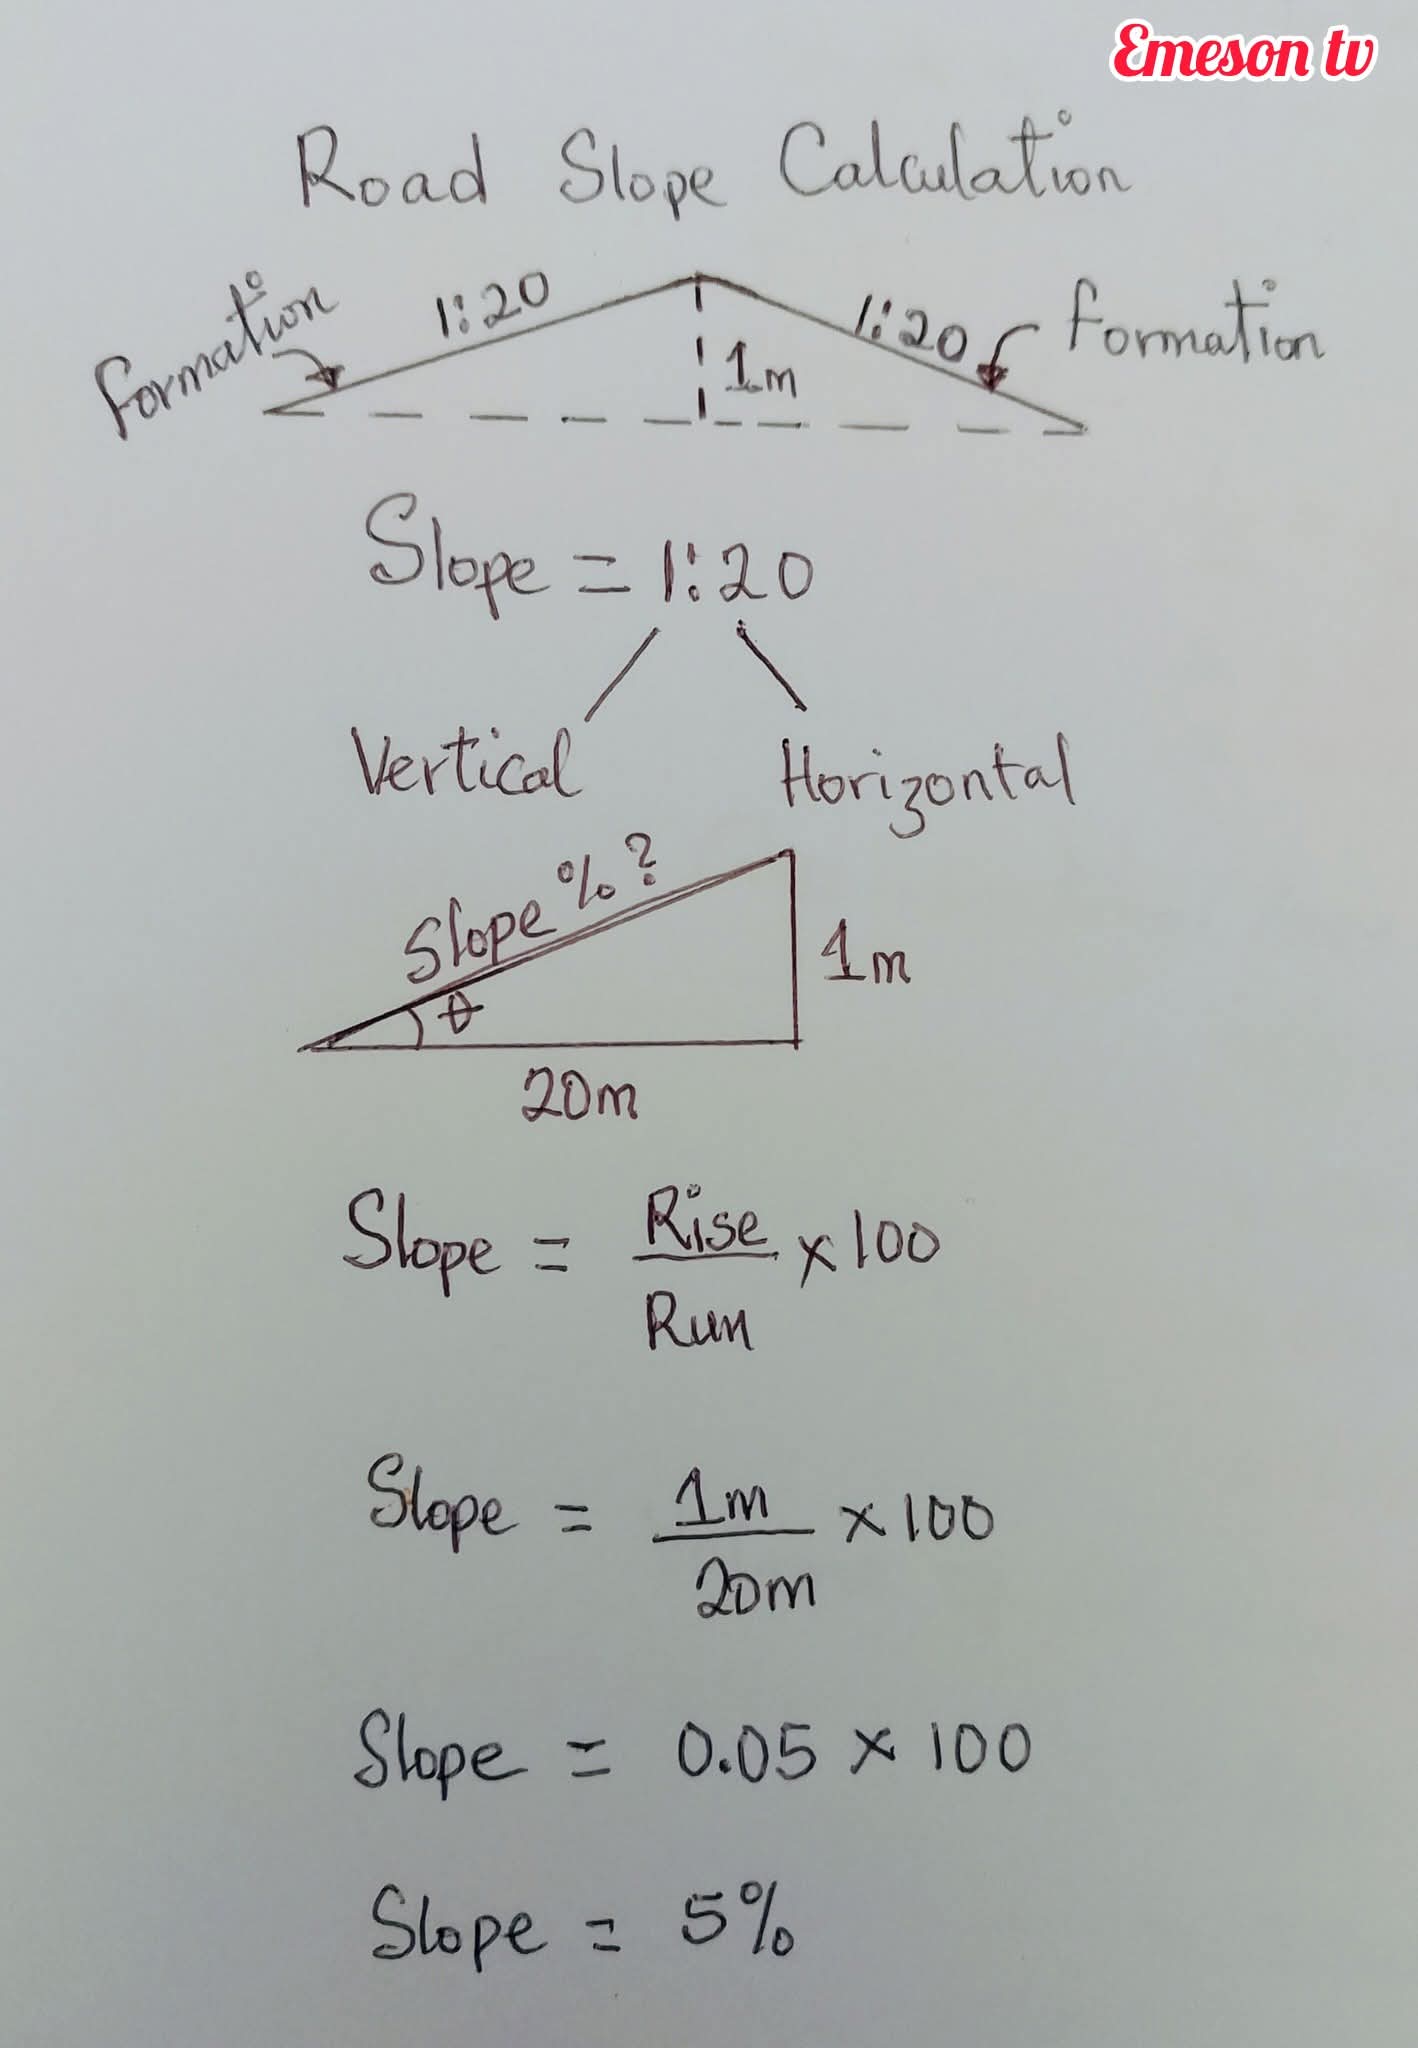 Emeson tv
Road Slope Calculation
Formation 1:20 1:20 Formation
1m
Slope = 1:20
Vertical Horizontal
Slope %?
1m
θ
20m
Slope = Rise/Run × 100
Slope = 1m/20m × 100
Slope = 0.05 × 100
Slope = 5%